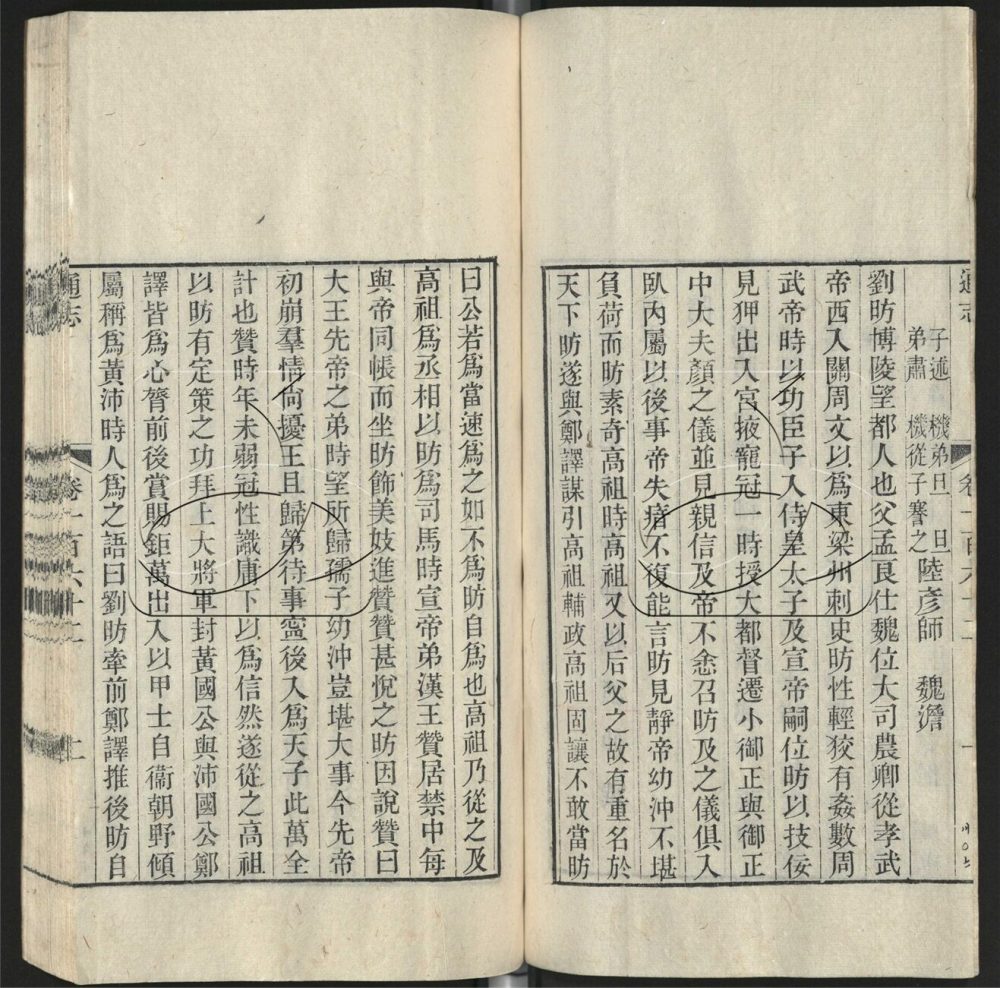 通志
卷一百六十二
一
子述 機弟旦 旦
弟肅 機從子謇之 陸彥師 魏澹
劉昉博陵望都人也父孟良仕魏位大司農卿從孝武
帝西入關周文以為東梁州刺史昉性輕狡有姦數周
武帝時以功臣子入侍皇太子及宣帝嗣位昉以技佞
見狎出入宮掖寵冠一時授大都督遷小御正與御正
中大夫顏之儀並見親信及帝不悆召昉及之儀俱入
臥內屬以後事帝失瘖不復能言昉見靜帝幼沖不堪
負荷而昉素奇高祖時高祖又以后父之故有重名於
天下昉遂與鄭譯謀引高祖輔政高祖固讓不敢當昉
曰公若為當速為之如不為昉自為也高祖乃從之及
高祖為丞相以昉為司馬時宣帝弟漢王贊居禁中每
與帝同帳而坐昉飾美妓進贊贊甚悅之昉因說贊曰
大王先帝之弟時望所歸孺子幼沖豈堪大事今先帝
初崩羣情尙擾王且歸第待事寧後入為天子此萬全
計也贊時年未弱冠性識庸下以為信然遂從之高祖
以昉有定策之功拜上大將軍封黃國公與沛國公鄭
譯皆為心膂前後賞賜鉅萬出入以甲士自衞朝野傾
屬稱為黃沛時人為之語曰劉昉牽前鄭譯推後昉自
通志
卷一百六十二